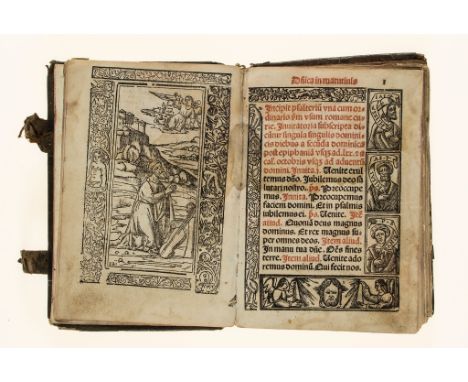 Dñica in matutinis
1
Incipit psalteriũ vna cum or
dinario ꝓm vsum romane cu
rie. Inuitatoria subscripta di
cũtur singula singulis domini
cis diebus a secũda dominica
post epiphaniã vsqꝫ ad .lxx. et a
cal. octobris vsqꝫ ad aduentũ
domini. Inuita. Uenite exul
temus dño. Iubilemus deo sa
lutari nostro. p̃s. Preoccupe
mus. Inuita. Preoccupemus
faciem domini. Et in psalmis
iubilemus ei. p̃s. Uenite. Itẽ
aliud. Quoniã deus magnus
dominus. Et rex magnus su
per omnes deos. Item aliud.
In manu tua dñe. Oẽs fines
terre. Item aliud. Uenite ado
remus dominũ Qui fecit nos.